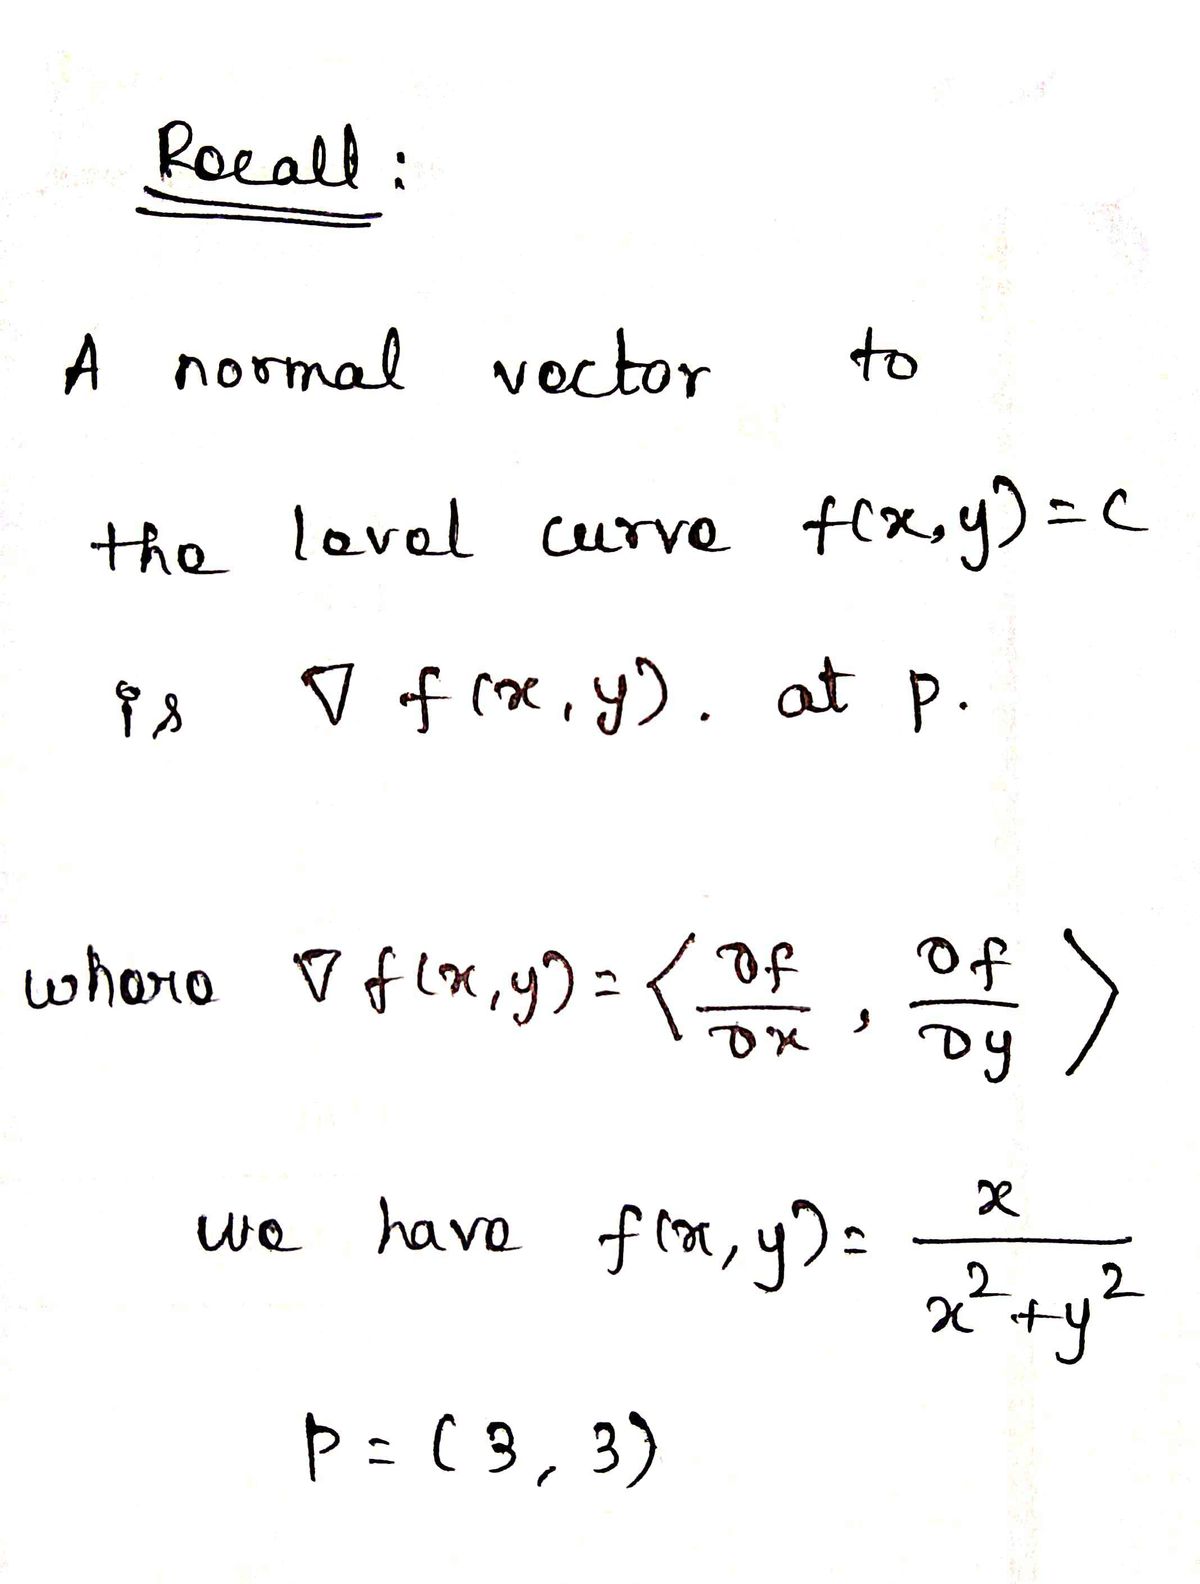 Recall:
A normal vector to
the level curve f(x,y)=c
is ∇ f(x,y). at p.
where ∇ f(x,y) = ⟨ ∂f/∂x , ∂f/∂y ⟩
we have f(x,y) = x/(x²+y²)
P = (3, 3)